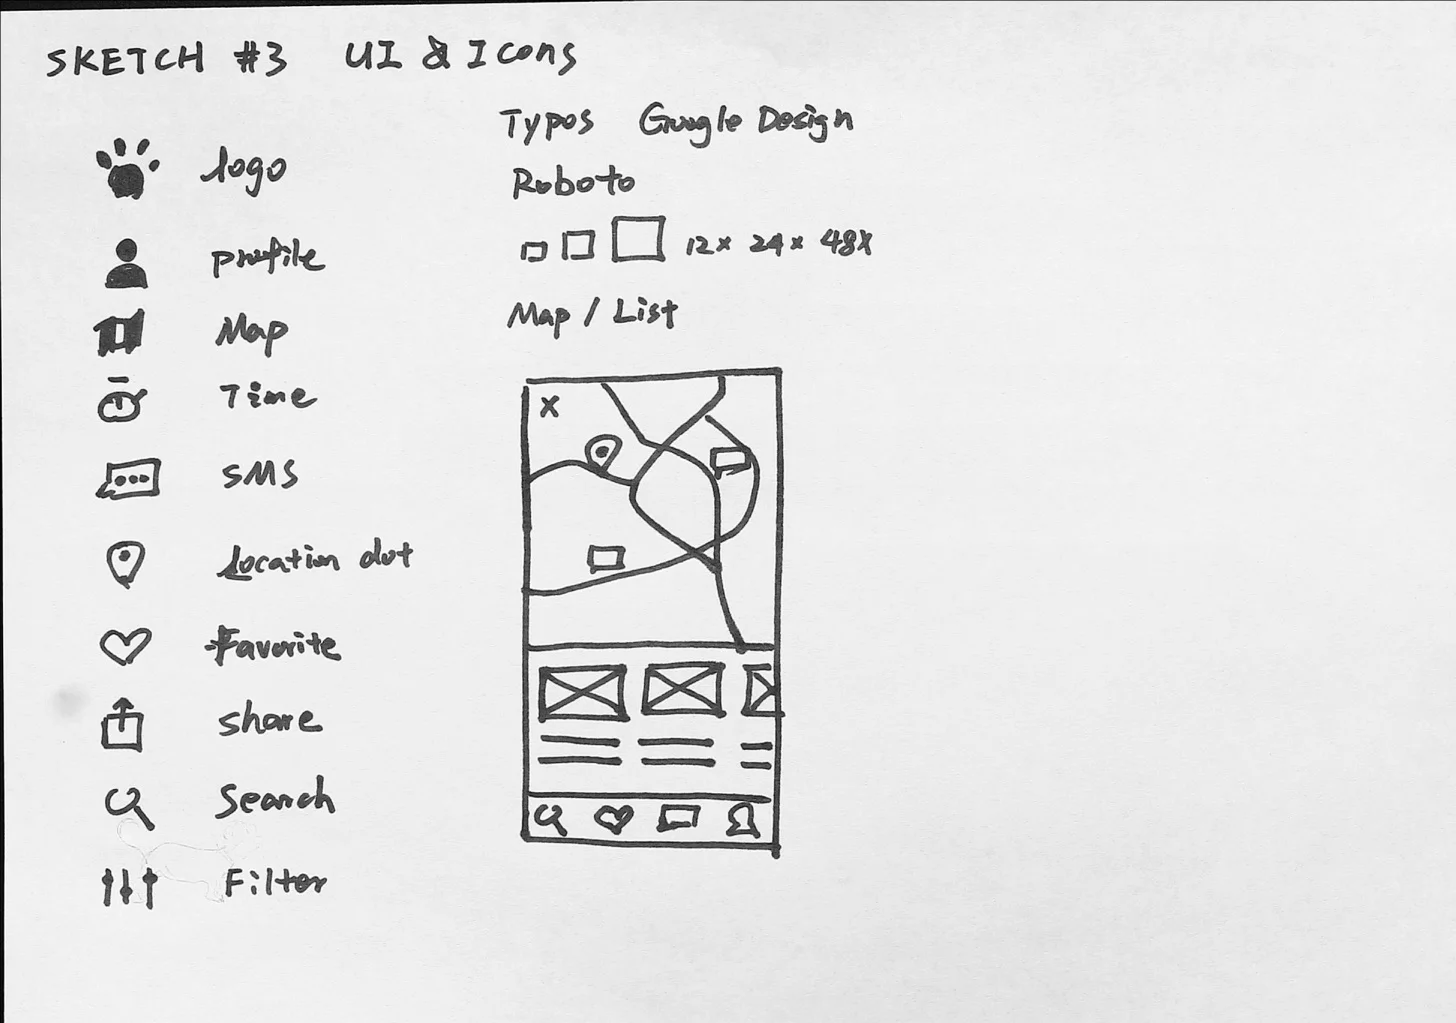 SKETCH #3 UI & Icons
logo
profile
Map
Time
SMS
Location dot
Favorite
share
Search
Filter
Typos Google Design
Roboto
12x 24x 48x
Map / List
X